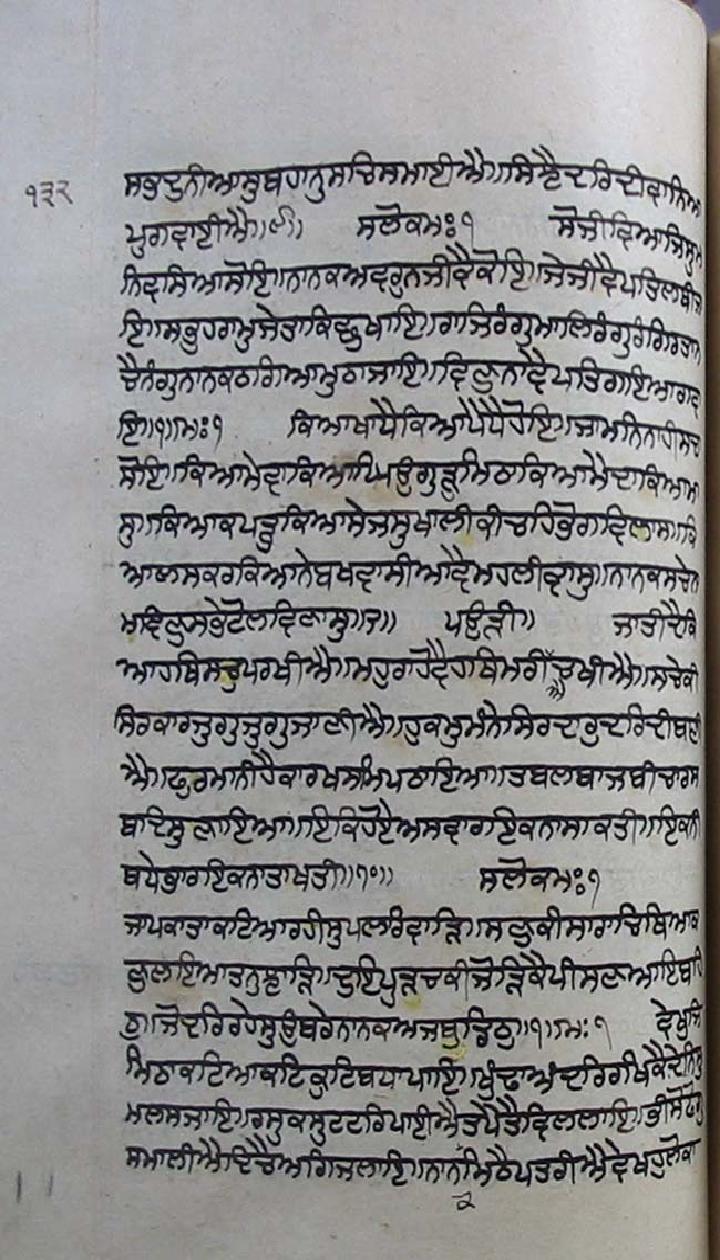 ੧੩੨
ਸਭੁਦੁਨੀਆਸੁਬਹਾਨੁਸਚਿਸਮਾਈਐ॥ਸਿਝੈਦਰਿਦੀਵਾਨਿਆ
ਪੁਗਵਾਈਐ॥੯॥ ਸਲੋਕਮਃ੧ ਸੋਜੀਵਿਆਜਿਸੁਮ
ਨਿਵਸਿਆਸੋਇ॥ਨਾਨਕਅਵਰੁਨਜੀਵੈਕੋਇ॥ਜੇਜੀਵੈਪਤਿਲਥੀਜਾ
ਇ॥ਸਭੁਹਰਾਮੁਜੇਤਾਕਿਛੁਖਾਇ॥ਰਾਜਿਰੰਗੁਮਾਲਿਰੰਗੁਰੰਗਿਰਤਾਨ
ਚੈਨੰਗੁਨਾਨਕਠਗਿਆਮੁਠਾਜਾਇ॥ਵਿਣੁਨਾਵੈਪਤਿਗਇਆਗਵਾ
ਇ॥੧॥ਮਃ੧ ਕਿਆਖਾਧੈਕਿਆਪੈਧੈਹੋਇ॥ਜਾਮਨਿਨਾਹੀਸਚਾ
ਸੋਇ॥ਕਿਆਮੇਵਾਕਿਆਘਿਉਗੁੜੁਮਿਠਾਕਿਆਮੈਦਾਕਿਆਮਾ
ਸੁ॥ਕਿਆਕਪੜੁਕਿਆਸੇਜਸੁਖਾਲੀਕੀਚਹਿਭੋਗਵਿਲਾਸ॥ਕਿ
ਆਲਸਕਰਕਿਆਨੇਬਖਵਾਸੀਆਵੈਮਹਲੀਵਾਸੁ॥ਨਾਨਕਸਚੇਨਾ
ਮਵਿਣੁਸਭੇਟੋਲਵਿਣਾਸੁ॥੨॥ ਪਉੜੀ॥ ਜਾਤੀਦੈਕਿ
ਆਹਥਿਸਚੁਪਰਖੀਐ॥ਮਹੁਰਾਹੋਵੈਹਥਿਮਰੀਐਚਖੀਐ॥ਸਚੇਕੀ
ਸਿਰਕਾਰਜੁਗੁਜੁਗੁਜਾਣੀਐ॥ਹੁਕਮੁਮੰਨੇਸਿਰਦਾਰੁਦਰਿਦੀਬਾਣੀ
ਐ॥ਫੁਰਮਾਨੀਹੈਕਾਰਖਸੰਮਿਪਠਾਇਆ॥ਤਬਲਬਾਜਬੀਚਾਰਸ
ਬਾਦਿਸੁਣਾਇਆ॥ਇਕਿਹੋਏਅਸਵਾਰਇਕਨਾਸਾਕਤੀ॥ਇਕਨੀ
ਬਧੇਭਾਰਇਕਨਾਤਾਖਤੀ॥੧੦॥ ਸਲੋਕਮਃ੧
ਜਾਪਕਾਤਾਕਟਿਆਰਹੀਸੁਪਲਰਿਵਾੜਿ॥ਸਣੁਕੀਸਾਰਾਚਿਥਿਆਕ
ਣੁਲਾਇਆਤਨੁਝਾੜਿ॥ਦੁਇਪੁੜਚਕੀਜੋੜਿਕੈਪੀਸਣਆਇਬਹਿ
ਠੁ॥ਜੋਦਰਿਰਹੇਸੁਉਬਰੇਨਾਨਕਅਜਬੁਡਿਠੁ॥੧॥ਮਃ੧ ਵੇਖੁਜਿ
ਮਿਠਾਕਟਿਆਕਟਿਕੁਟਿਬਧਾਪਾਇ॥ਖੁੰਢਾਅੰਦਰਿਰਖਿਕੈਦੇਨਿਸੁ
ਮਲਸਜਾਇ॥ਰਸੁਕਸੁਟਟਰਿਪਾਈਐਤਪੈਤੈਵਿਲਲਾਇ॥ਭੀਸੋਫੋਗੁ
ਸਮਾਲੀਐਦਿਚੈਅਗਿਜਲਾਇ॥ਨਾਨਮਿਠੈਪਤਰੀਐਵੇਖਹੁਲੋਕਾ